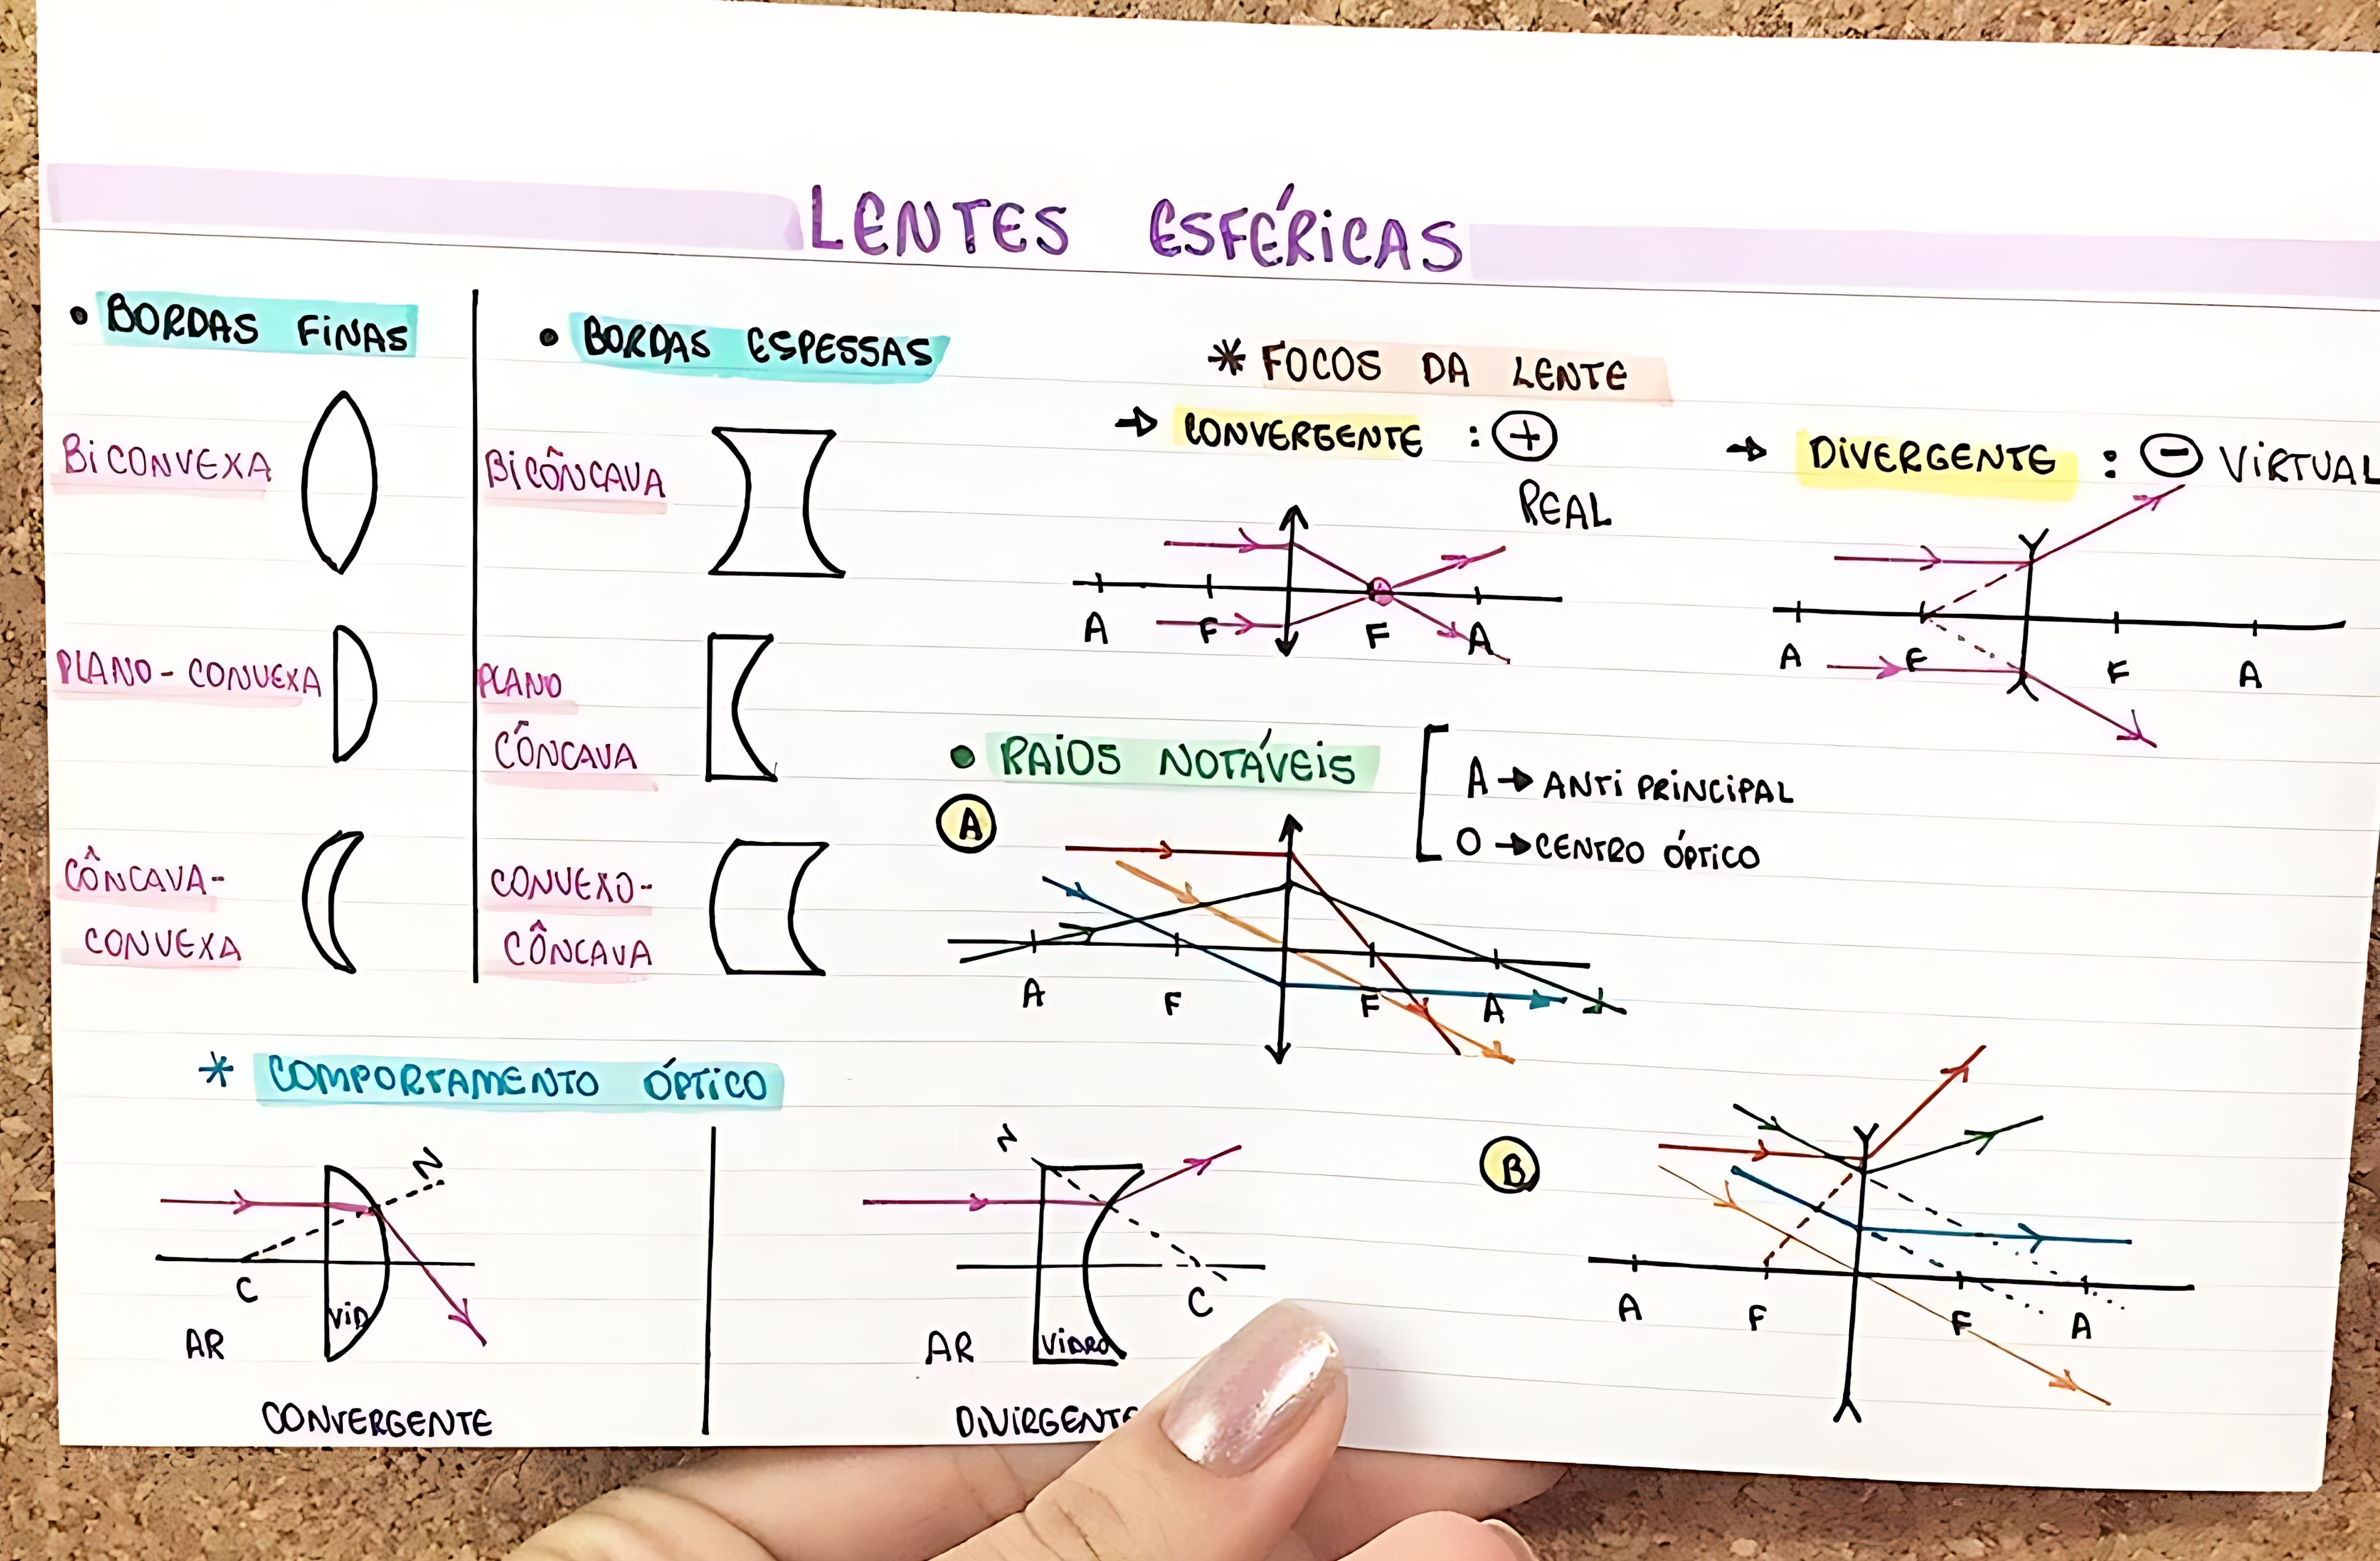 LENTES ESFÉRICAS
• BORDAS FINAS
BICONVEXA
PLANO-CONVEXA
CÔNCAVA-
CONVEXA
• BORDAS ESPESSAS
BICÔNCAVA
PLANO
CÔNCAVA
CONVEXO-
CÔNCAVA
* FOCOS DA LENTE
→ CONVERGENTE : +
REAL
A F F A
→ DIVERGENTE : - VIRTUAL
A F F A
• RAIOS NOTÁVEIS
A → ANTI PRINCIPAL
O → CENTRO ÓPTICO
A
A F F A
B
A F F A
* COMPORTAMENTO ÓPTICO
N
C
VID
AR
CONVERGENTE
N
C
AR
VIDRO
DIVIRGENTE